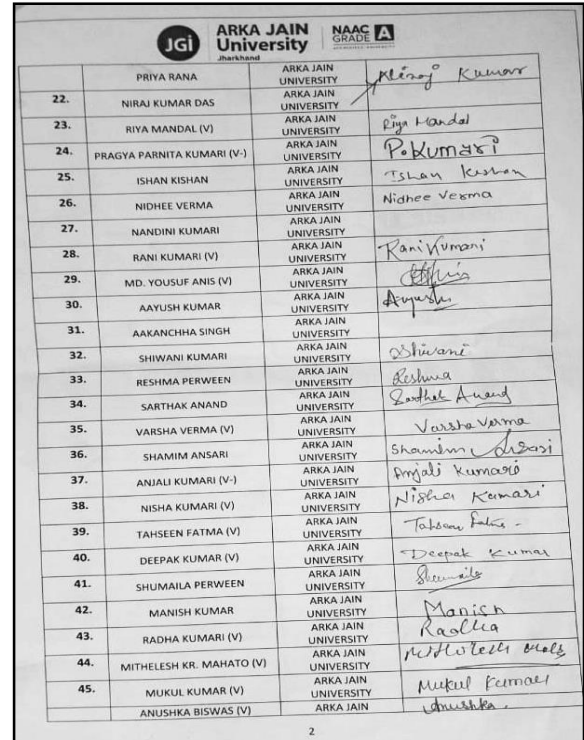 JGi ARKA JAIN University Jharkhand NAAC GRADE A
PRIYA RANA ARKA JAIN UNIVERSITY
22. NIRAJ KUMAR DAS ARKA JAIN UNIVERSITY Niraj Kumar
23. RIYA MANDAL (V) ARKA JAIN UNIVERSITY Riya Mandal
24. PRAGYA PARNITA KUMARI (V-) ARKA JAIN UNIVERSITY P. Kumari
25. ISHAN KISHAN ARKA JAIN UNIVERSITY Ishan Kishan
26. NIDHEE VERMA ARKA JAIN UNIVERSITY Nidhee Verma
27. NANDINI KUMARI ARKA JAIN UNIVERSITY
28. RANI KUMARI (V) ARKA JAIN UNIVERSITY Rani Kumari
29. MD. YOUSUF ANIS (V) ARKA JAIN UNIVERSITY
30. AAYUSH KUMAR ARKA JAIN UNIVERSITY
31. AAKANCHHA SINGH ARKA JAIN UNIVERSITY
32. SHIWANI KUMARI ARKA JAIN UNIVERSITY Shiwani
33. RESHMA PERWEEN ARKA JAIN UNIVERSITY Reshma
34. SARTHAK ANAND ARKA JAIN UNIVERSITY Sarthak Anand
35. VARSHA VERMA (V) ARKA JAIN UNIVERSITY Varsha Verma
36. SHAMIM ANSARI ARKA JAIN UNIVERSITY Shamim Ansari
37. ANJALI KUMARI (V-) ARKA JAIN UNIVERSITY Anjali Kumari
38. NISHA KUMARI (V) ARKA JAIN UNIVERSITY Nisha Kumari
39. TAHSEEN FATMA (V) ARKA JAIN UNIVERSITY Tahseen Fatma
40. DEEPAK KUMAR (V) ARKA JAIN UNIVERSITY Deepak Kumar
41. SHUMAILA PERWEEN ARKA JAIN UNIVERSITY Shumaila
42. MANISH KUMAR ARKA JAIN UNIVERSITY Manish
43. RADHA KUMARI (V) ARKA JAIN UNIVERSITY Radha
44. MITHELESH KR. MAHATO (V) ARKA JAIN UNIVERSITY
45. MUKUL KUMAR (V) ARKA JAIN UNIVERSITY Mukul Kumar
ANUSHKA BISWAS (V) ARKA JAIN Anushka
2